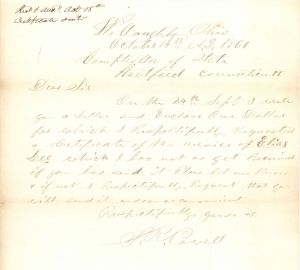 Rec'd & Ans'd Oct 15th
Certificate sent
Willoughby Ohio
October 12th A.D. 1861
Comptroller of State
Hartford Connecticut
Dear Sir
On the 24th Sept I wrote
you a letter and Enclose One Dollar
for which I Respectifully Requested
a Certificate of the service of Elias
Lee which I has not as yet Received
if you has send it Please let me know
& if not I Respectifully Request that you
will send it as soon as convenient
Respectifully yours &c
S. R. Covell